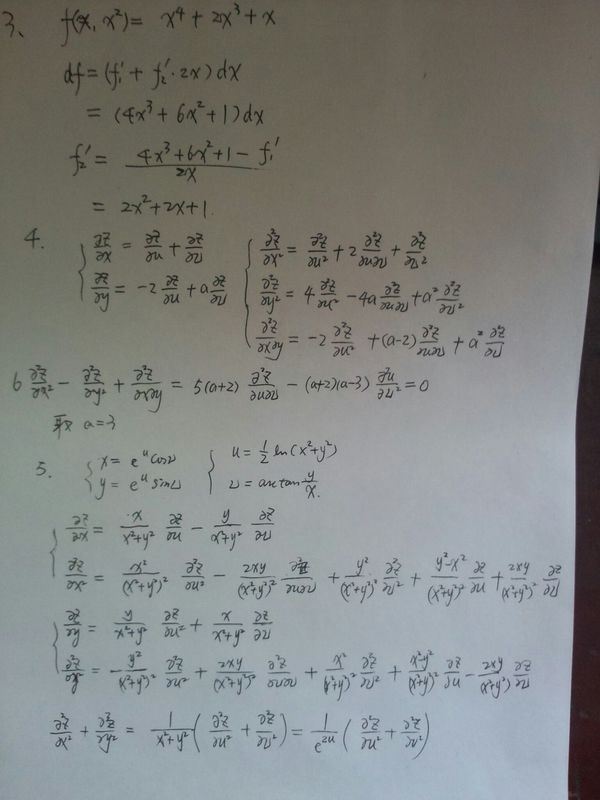 3、 f(x, x²) = x⁴ + 2x³ + x
df = (f₁' + f₂'·2x) dx
= (4x³ + 6x² + 1) dx
f₂' = (4x³ + 6x² + 1 − f₁') / 2x
= 2x² + 2x + 1.
4. { ∂z/∂x = ∂z/∂u + ∂z/∂v { ∂²z/∂x² = ∂²z/∂u² + 2 ∂²z/∂u∂v + ∂²z/∂v²
∂z/∂y = −2 ∂z/∂u + a ∂z/∂v ∂²z/∂y² = 4 ∂²z/∂u² − 4a ∂²z/∂u∂v + a² ∂²z/∂v²
∂²z/∂x∂y = −2 ∂²z/∂u² + (a−2) ∂²z/∂u∂v + a ∂²z/∂v
6 ∂²z/∂x² − ∂²z/∂y² + ∂²z/∂x∂y = 5(a+2) ∂²z/∂u∂v − (a+2)(a−3) ∂²u/∂v² = 0
取 a=3
5. { x = eᵘ cosv { u = ½ ln(x²+y²)
y = eᵘ sinv v = arctan y/x.
{ ∂z/∂x = x/(x²+y²) ∂z/∂u − y/(x²+y²) ∂z/∂v
∂²z/∂x² = x²/(x²+y²)² ∂²z/∂u² − 2xy/(x²+y²)² ∂²z/∂u∂v + y²/(x²+y²)² ∂²z/∂v² + (y²−x²)/(x²+y²)² ∂z/∂u + 2xy/(x²+y²)² ∂z/∂v
{ ∂z/∂y = y/(x²+y²) ∂z/∂u² + x/(x²+y²) ∂z/∂v
∂²z/∂y² = −y²/(x²+y²)² ∂²z/∂u² + 2xy/(x²+y²)² ∂²z/∂u∂v + x²/(x²+y²)² ∂²z/∂v² + (x²−y²)/(x²+y²)² ∂z/∂u − 2xy/(x²+y²)² ∂z/∂v
∂²z/∂x² + ∂²z/∂y² = 1/(x²+y²) ( ∂²z/∂u² + ∂²z/∂v² ) = 1/e²ᵘ ( ∂²z/∂u² + ∂²z/∂v² )